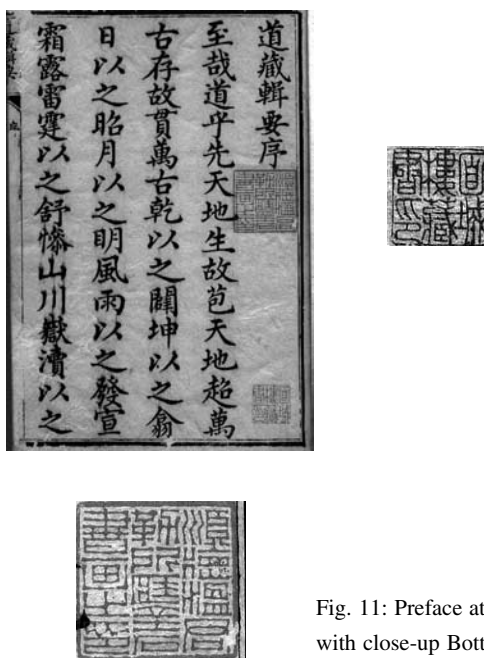 道藏輯要序
至哉道乎先天地生故苞天地超萬
古存故貫萬古乾以之闢坤以之翕
日以之昭月以之明風雨以之發宣
霜露雷霆以之舒慘山川嶽瀆以之
面城
樓藏
書印
順德溫君
勒所藏金石
書畫之印
Fig. 11: Preface at
with close-up Bott